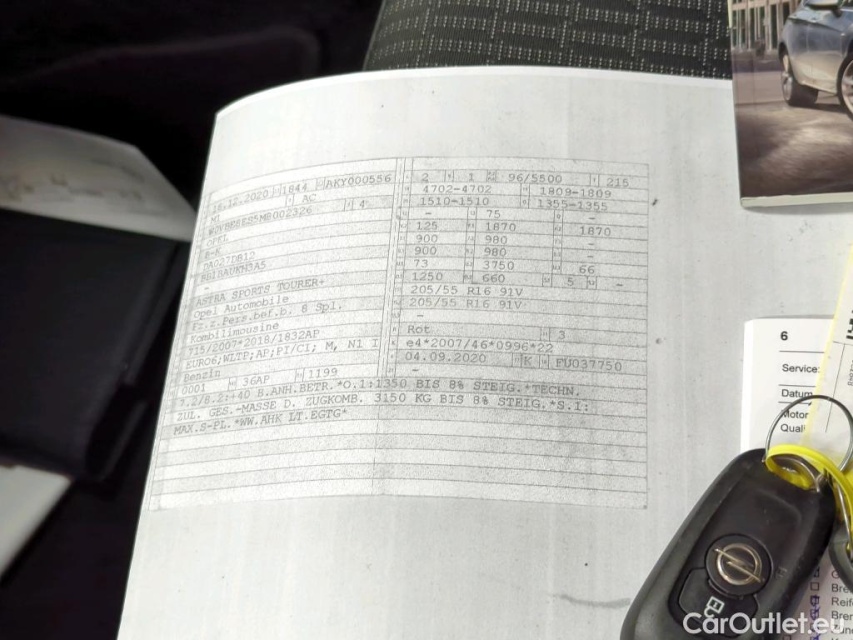 16.12.2020 1844 AKY000556
M1 AC
W0VBE8ES5MB002326 4
OPEL
B-K
DA027D812
ASTRA SPORTS TOURER+
Opel Automobile
Fz.z.Pers.bef.b. 8 Spl.
Kombilimousine
715/2007*2018/1832AP
EURO6;WLTP;AP;PI/CI; M, N1 I
Benzin
0001 36AP 1199
2 1 96/5500 215
4702-4702 1809-1809
1510-1510 1355-1355
- 75 -
125 1870 1870
900 980 -
900 980 -
73 3750 66
1250 660 5 -
205/55 R16 91V
205/55 R16 91V
-
Rot 3
e4*2007/46*0996*22
04.09.2020 K FU037750
-
7.2/8.2:+40 B.ANH.BETR.*O.1:1350 BIS 8% STEIG.*TECHN.
ZUL. GES.-MASSE D. ZUGKOMB. 3150 KG BIS 8% STEIG.*S.1:
MAX.S-PL.*WW.AHK LT.EGTG*
6
Service:
Datum
Motor
Quali
Reife
CarOutlet.eu